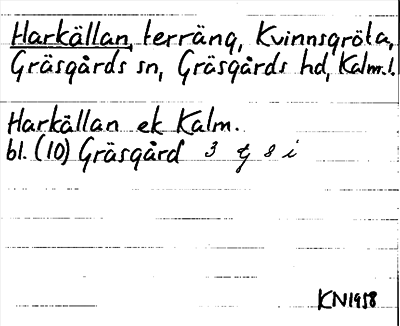 Harkällan, terräng, Kvinnsgröta,
Gräsgårds sn, Gräsgårds hd, Kalm.l.
Harkällan ek Kalm.
bl. (10) Gräsgård 3 g 8 i
KN1958